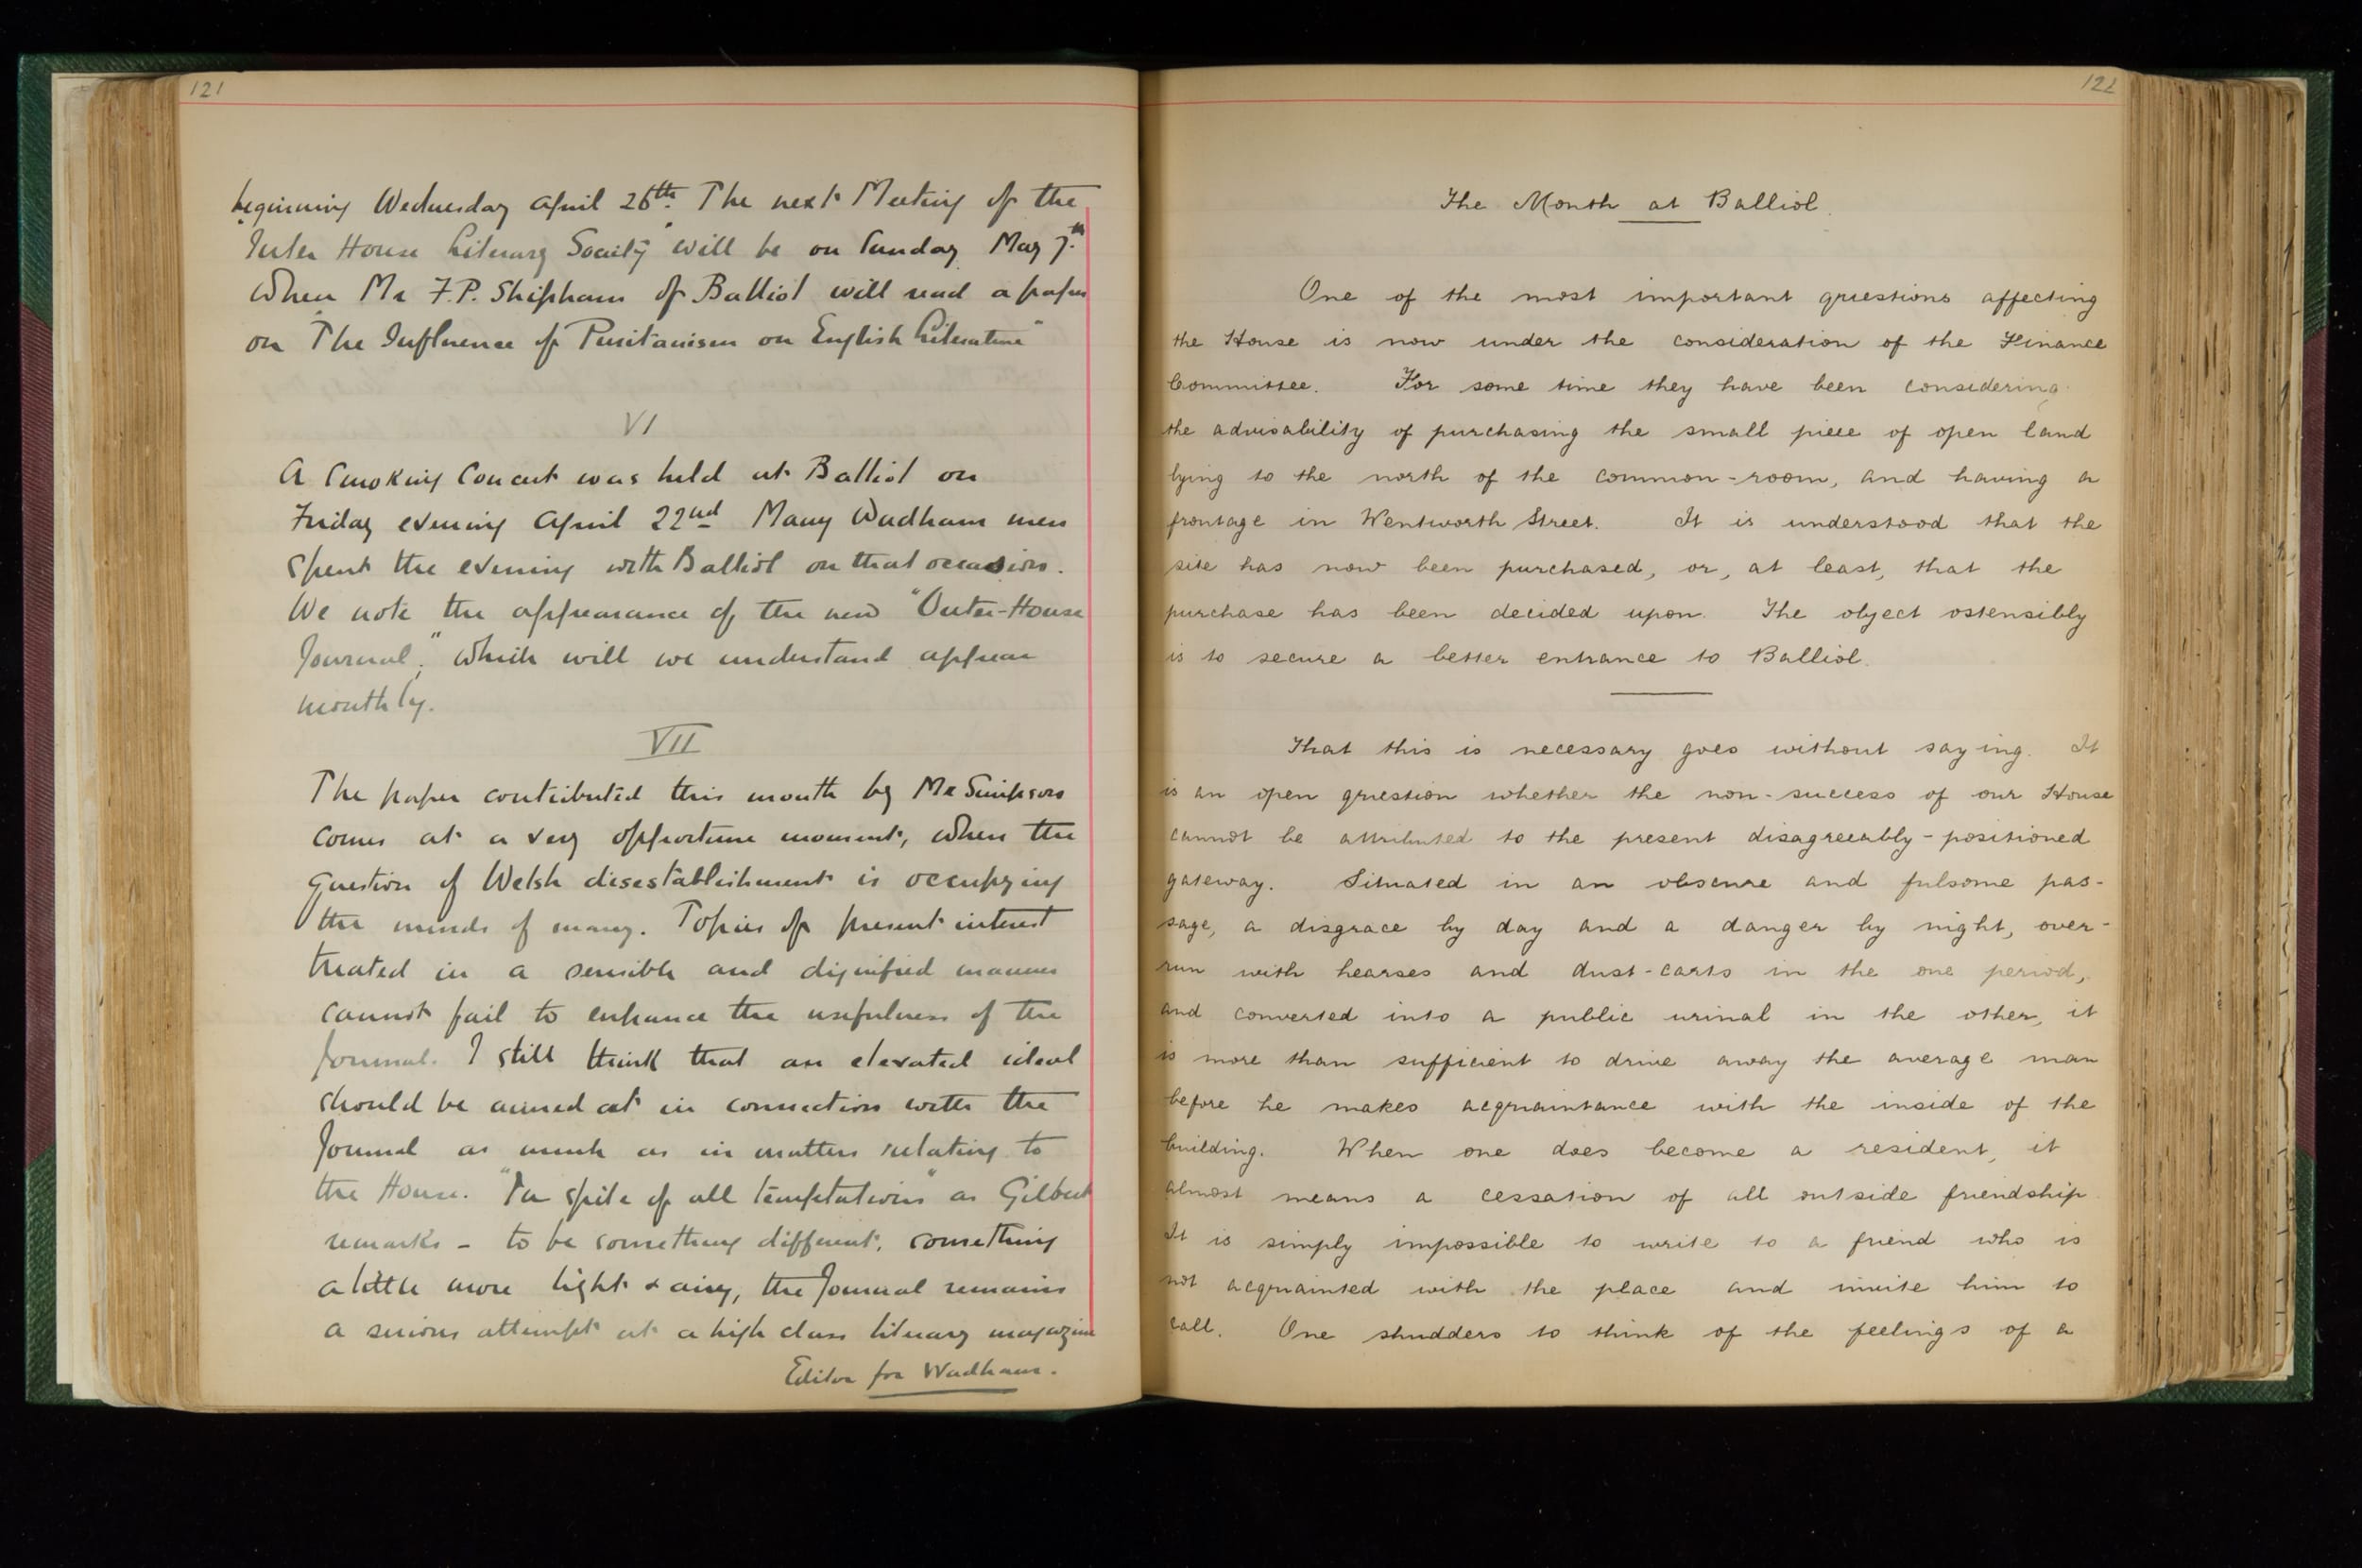 121
beginning Wednesday April 26th. The next Meeting of the
"Inter House Literary Society" will be on Sunday May 7th.
When Mr F.P. Shipham of Balliol will read a paper
on "The Influence of Puritanism on English Literature"
VI
A Smoking Concert was held at Balliol on
Friday evening April 22nd Many Wadham men
spent the evening with Balliol on that occasion.
We note the appearance of the new "Outer-House
Journal," which will we understand appear
monthly.
VII
The paper contributed this month by Mr Simpson
comes at a very opportune moment, when the
question of Welsh disestablishment is occupying
the minds of many. Topics of present interest
treated in a sensible and dignified manner
cannot fail to enhance the usefulness of the
Journal. I still think that an elevated ideal
should be aimed at in connection with the
Journal as much as in matters relating to
the House. "In spite of all temptations" as Gilbert
remarks - to be something different, something
a little more light & airy, the Journal remains
a serious attempt at a high class literary magazine
Editor for Wadham.
122
The Month at Balliol.
One of the most important questions affecting
the House is now under the consideration of the Finance
Committee. For some time they have been considering
the advisability of purchasing the small piece of open land
lying to the north of the common-room, and having a
frontage in Wentworth Street. It is understood that the
site has now been purchased, or, at least, that the
purchase has been decided upon. The object ostensibly
is to secure a better entrance to Balliol.
That this is necessary goes without saying. It
is an open question whether the non-success of our House
cannot be attributed to the present disagreeably-positioned
gateway. Situated in an obscure and fulsome pas-
sage, a disgrace by day and a danger by night, over-
run with hearses and dust-carts in the one period,
and converted into a public urinal in the other, it
is more than sufficient to drive away the average man
before he makes acquaintance with the inside of the
building. When one does become a resident, it
almost means a cessation of all outside friendship.
It is simply impossible to write to a friend who is
not acquainted with the place and invite him to
call. One shudders to think of the feelings of a